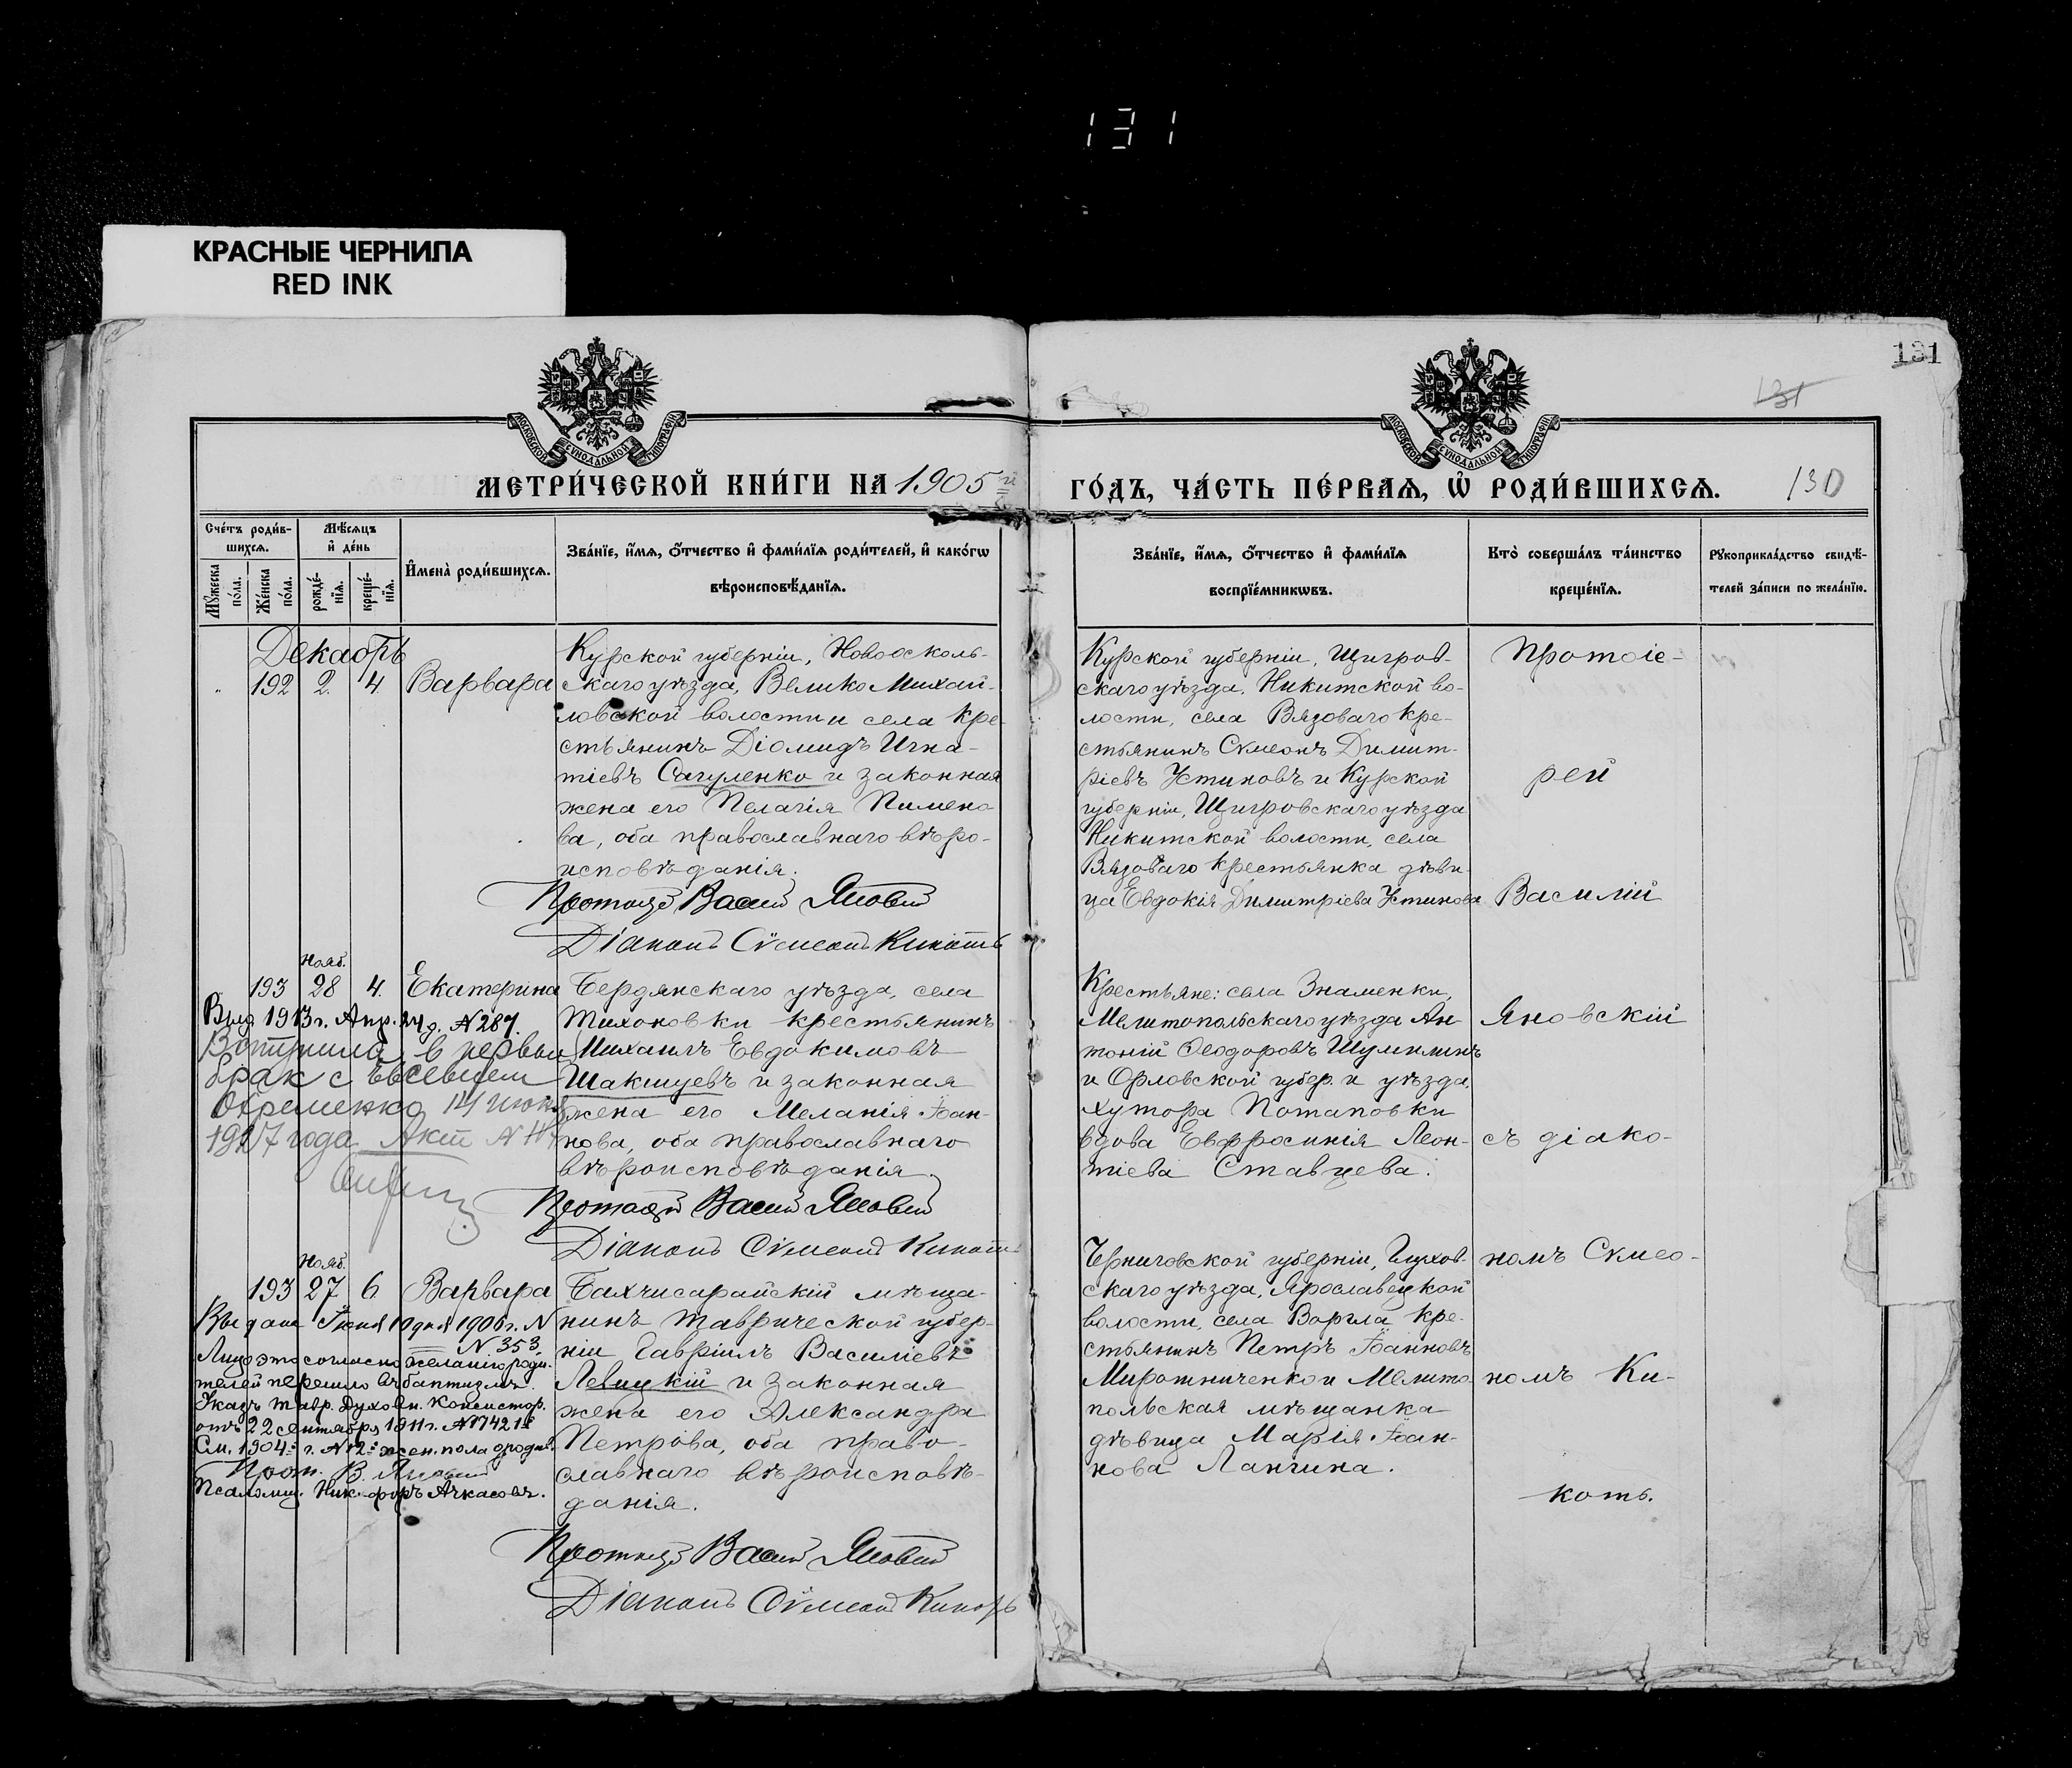 131
КРАСНЫЕ ЧЕРНИЛА
RED INK
131
131
МОСКОВСКОЙ СѴНОДАЛЬНОЙ ТИПОГРАФІИ
МОСКОВСКОЙ СѴНОДАЛЬНОЙ ТИПОГРАФІИ
МЕТРИ́ЧЕСКОЙ КНИ́ГИ НА 1905 й
ГО́ДЪ, ЧА́СТЬ ПЕ́РВАѦ, Ѽ РОДИ́ВШИХСѦ.
130
Сче́тъ роди́в-
шихсѧ.
Мѣ́сѧцъ
и҆ де́нь
Мꙋ́жеска по́ла.
Же́нска по́ла.
рожде́-
нїѧ.
креще́-
нїѧ.
И҆мена̀ роди́вшихсѧ.
Зва́нїе, и҆́мѧ, ѻ҆́тчество и҆ фами́лїѧ роди́телей, и҆ како́гѡ
вѣроисповѣ́данїѧ.
Зва́нїе, и҆́мѧ, ѻ҆́тчество и҆ фами́лїѧ
воспрїе́мникѡвъ.
Кто̀ соверша́лъ та́инство
креще́нїѧ.
Рꙋкоприкла́дство свидѣ́-
телей за́писи по жела́нїю.
Декабрь
192 2. 4. Варвара
Курской губерніи, Новоосколь-
скаго уѣзда, Велико Михай-
ловской волости и села кре-
стьянинъ Діомидъ Игна-
тіевъ Сагуленко и законная
жена его Пелагія Пимено-
ва, оба православнаго вѣро-
исповѣданія.
Протоіерей Василій Яновскій
Діаконъ Сѵмеонъ Кикоть
Курской губерніи, Щигров-
скаго уѣзда, Никитской во-
лости, села Вязоваго кре-
стьянинъ Сѵмеонъ Димит-
ріевъ Устиновъ и Курской
губерніи, Щигровскаго уѣзда
Никитской волости, села
Вязоваго крестьянка дѣви-
ца Евдокія Димитріева Устинова
Протоіе-
рей
Василій
Нояб.
193 28 4. Екатерина
Выд. 1913 г. Апр. 24 д. N 287.
Вступила в первый
брак с Евсевием
Ефременко 14 июня
1927 года Акт N
Бердянскаго уѣзда, села
Тихоновки крестьянинъ
Михаилъ Евдокимовъ
Шакшуевъ и законная
жена его Меланія Іоан-
нова, оба православнаго
вѣроисповѣданія.
Протоіерей Василій Яновскій
Діаконъ Сѵмеонъ Кикоть
Крестьяне: села Знаменки,
Мелитопольскаго уѣзда Ан-
тоній Ѳеодоровъ Шумилинъ
и Орловской губер. и уѣзда,
хутора Потаповки
вдова Евфросинія Леон-
тіева Ставцева.
Яновскій
съ діако-
Нояб.
193 27 6. Варвара
Выдана Іюня 10 дня 1906 г. N
N 353.
Лицо это согласно желанію роди-
телей перешло въ баптизмъ.
Указъ Тавр. Духовн. Консистор.
отъ 22 сентября 1911 г. N 17421
См. 1904 г. N 12 жен. пола о родив.
Прот. В. Яновскій
Псаломщ. Никифоръ Ачкасовъ.
Бахчисарайскій мѣща-
нинъ Таврической губер-
ніи Гавріилъ Василіевъ
Левицкій и законная
жена его Александра
Петрова, оба право-
славнаго вѣроисповѣ-
данія.
Протоіерей Василій Яновскій
Діаконъ Сѵмеонъ Кикоть
Черниговской губерніи, Глухов-
скаго уѣзда, Ярославецкой
волости, села Воргла кре-
стьянинъ Петръ Іоанновъ
Мирошниченко и Мелито-
польская мѣщанка
дѣвица Марія Іоан-
нова Лангина.
номъ Сѵмео-
номъ Ки-
коть.